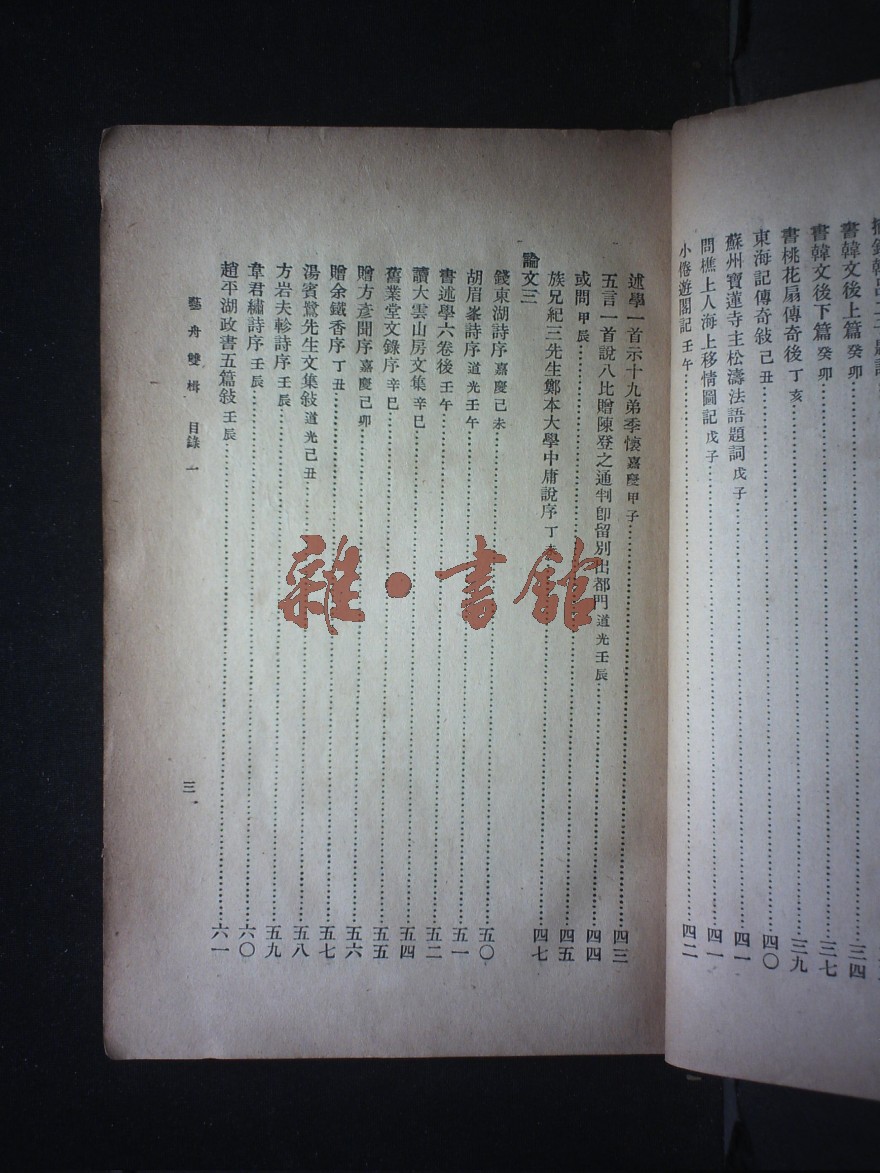 書韓文後上篇 癸卯……三四
書韓文後下篇 癸卯……三七
書桃花扇傳奇後 丁亥……三九
東海記傳奇敍 己丑……四〇
蘇州寶蓮寺主松濤法語題詞 戊子……四一
問樵上人海上移情圖記 戊子……四一
小倦遊閣記 壬午……四二
述學一首示十九弟季懷 嘉慶甲子……四三
五言一首說八比贈陳登之通判卽留別出都門 道光壬辰……四四
或問 甲辰……四五
族兄紀三先生鄭本大學中庸說序 丁……四七
論文三
錢東湖詩序 嘉慶己未……五〇
胡眉峯詩序 道光壬午……五一
書述學六卷後 壬午……五二
讀大雲山房文集 辛巳……五四
舊業堂文錄序 辛巳……五五
贈方彥聞序 嘉慶己卯……五六
贈余鐵香序 丁丑……五七
湯賓鷺先生文集敍 道光己丑……五八
方岩夫軫詩序 壬辰……五九
韋君繡詩序 壬辰……六〇
趙平湖政書五篇敍 壬辰……六一
藝舟雙楫 目錄一
三
雜·書館